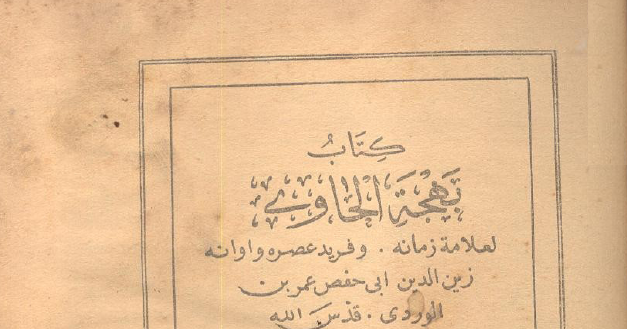 كِتَابُ
بَهْجَةِ الْحَاوِي
لعلامة زمانه . وفريد عصره واوانه
زين الدين ابى حفص عمر بن
الوردى . قدّسَ الله